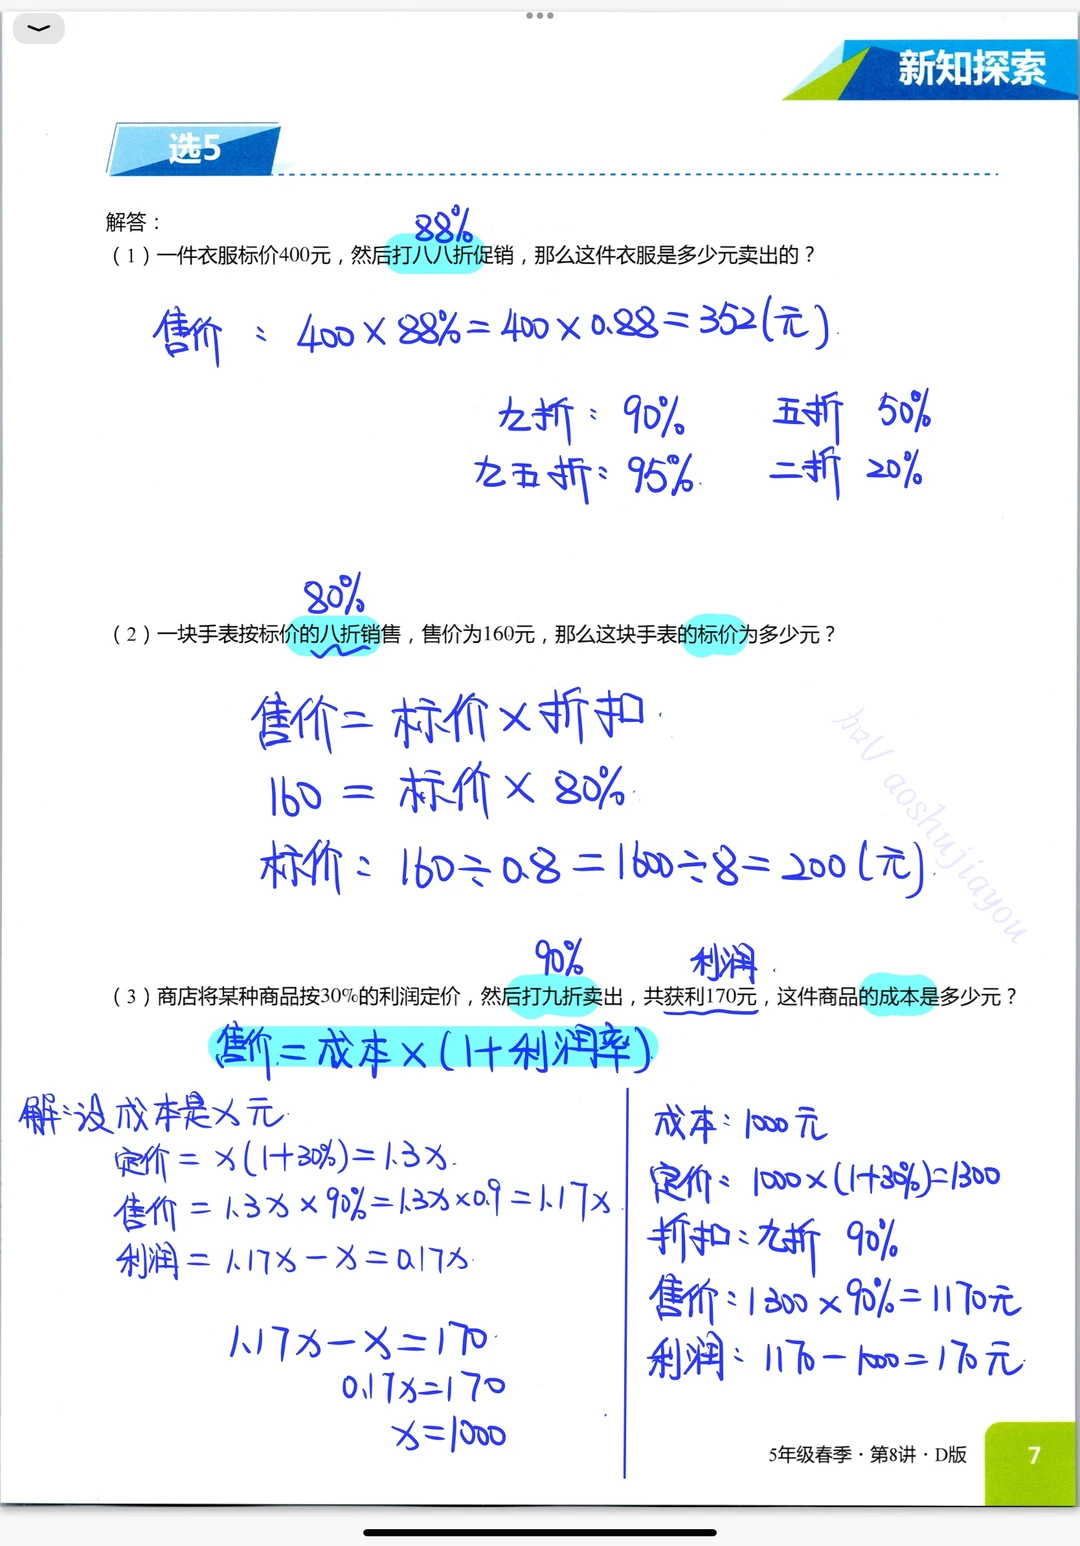 新知探索
选5
解答：
88%
（1）一件衣服标价400元，然后打八八折促销，那么这件衣服是多少元卖出的？
售价：400×88%=400×0.88=352(元).
九折：90% 五折 50%
九五折：95%. 二折 20%
80%
（2）一块手表按标价的八折销售，售价为160元，那么这块手表的标价为多少元？
售价=标价×折扣.
160=标价×80%.
标价：160÷0.8=1600÷8=200(元).
aoshujiayou
90% 利润.
（3）商店将某种商品按30%的利润定价，然后打九折卖出，共获利170元，这件商品的成本是多少元？
售价=成本×(1+利润率)
解：设成本是x元.
定价=x(1+30%)=1.3x.
售价=1.3x×90%=1.3x×0.9=1.17x.
利润=1.17x-x=0.17x.
1.17x-x=170.
0.17x=170
x=1000
成本：1000元
定价：1000×(1+30%)=1300
折扣：九折 90%
售价：1300×90%=1170元
利润：1170-1000=170元.
5年级春季·第8讲·D版
7